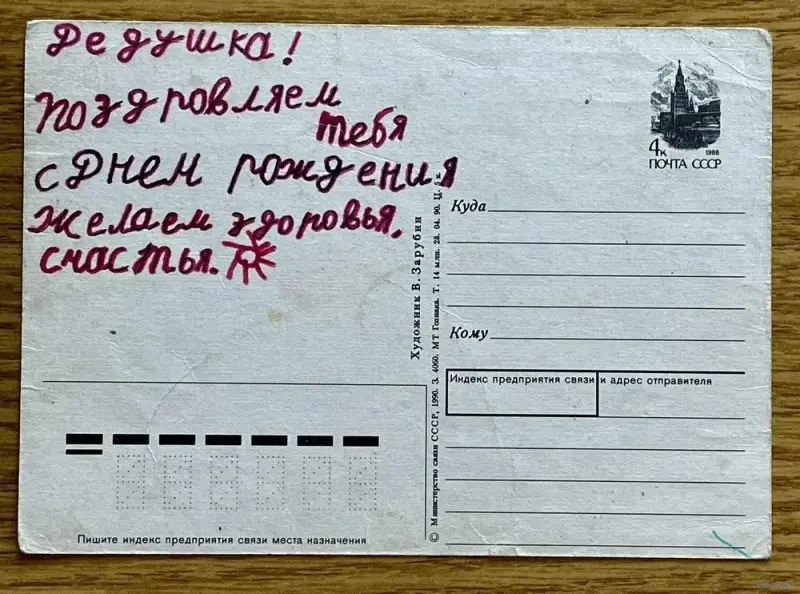 Дедушка!
Поздровляем
тебя
с Днем рождения
желаем здоровья,
счастья.
4к
1988
ПОЧТА СССР
Куда
Кому
Индекс предприятия связи и адрес отправителя
Художник В. Зарубин
© Министерство связи СССР, 1990. З. 4060. МТ Гознака. Т. 14 млн. 28. 04. 90. Ц. 5 к.
Пишите индекс предприятия связи места назначения